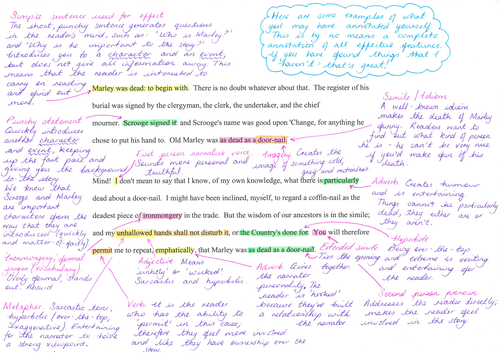 Simple sentence used for effect
The short, punchy sentence generates questions
in the reader's mind, such as - 'Who is Marley?'
and 'Why is he important to the story?' It
introduces you to a character and an event,
but does not give all information away. This
means that the reader is interested to
carry on reading
and find out
more.
Here are some examples of what
you may have annotated yourself.
This is by no means a complete
annotation of all effective features.
If you have found things that I
haven't - that's great!
Marley was dead: to begin with. There is no doubt whatever about that. The register of his
burial was signed by the clergyman, the clerk, the undertaker, and the chief
mourner. Scrooge signed it: and Scrooge's name was good upon 'Change, for anything he
chose to put his hand to. Old Marley was as dead as a door-nail.
Punchy statement
Quickly introduces
another character
and event, keeping
up the fast pace and
giving you the background
to the story.
We know that
Scrooge and Marley
are important
characters from the
way that they are
introduced (quickly
and matter-of-factly)
Simile / Idiom
A well-known idiom
makes the death of Marley
funny. Readers want to
find out what kind of person
he is - he can't be very nice
if you'd make fun of his
death.
First person narrative voice
Sounds more personal and
truthful
Imagery Creates the
image of something cold,
grey and motionless
Mind! I don't mean to say that I know, of my own knowledge, what there is particularly
dead about a door-nail. I might have been inclined, myself, to regard a coffin-nail as the
deadest piece of ironmongery in the trade. But the wisdom of our ancestors is in the simile;
and my unhallowed hands shall not disturb it, or the Country's done for. You will therefore
permit me to repeat, emphatically, that Marley was as dead as a door-nail.
Adverb Creates humour
and is entertaining
Things cannot be particularly
dead, they either are or
they aren't.
Ironmongery, formal
jargon (vocabulary)
Overly formal, stands
out. Absurd.
Metaphor Sarcastic tone,
hyperbolic (over-the-top,
exaggerative) Entertaining
for the narrator to have
a strong viewpoint.
Adjective Means
'unholy' or 'wicked'
Sarcastic and hyperbolic.
Verb It is the reader
who has the ability to
'permit' in this case,
therefore they feel more involved
and like they have ownership over the
story.
Adverb Gives
the narrator
personality. The
reader is hooked
because they've built
a relationship with
the narrator
Extended simile
Ties the opening
Hyperbole
Being over-the-top
and extreme is exciting
and entertaining for
the reader.
Second person pronoun
Addresses the reader directly;
makes the reader feel
involved in the story.